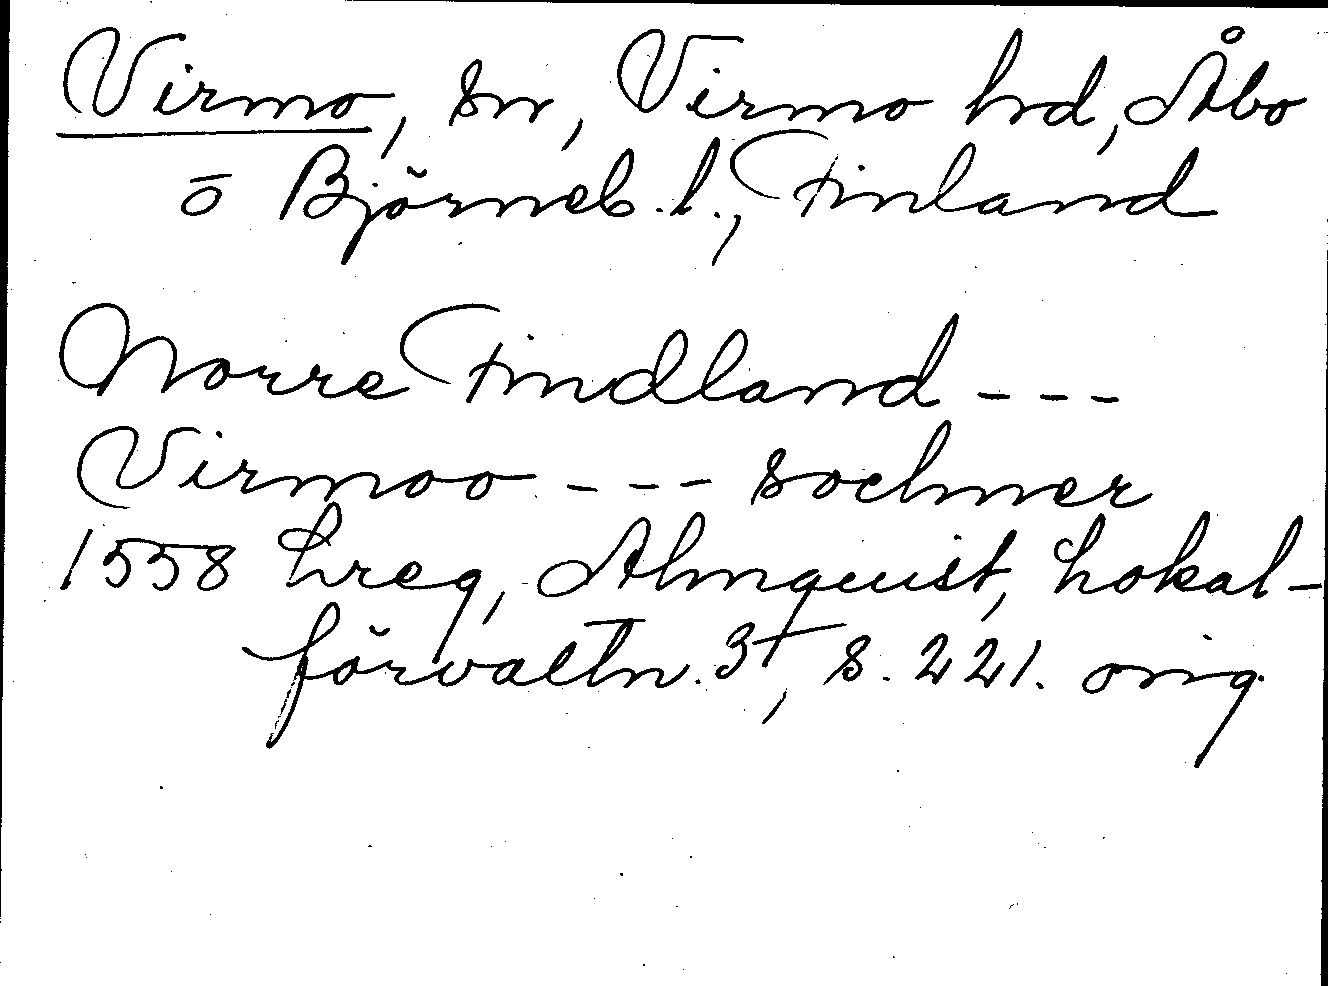 Virmo, sn, Virmo hd, Åbo
o Björneb. l., Finland
Norre Findland - - -
Virmoo - - - sochner
1558 Lreg, Almquist, Lokal-
förvaltn. 3†, s. 221. orig